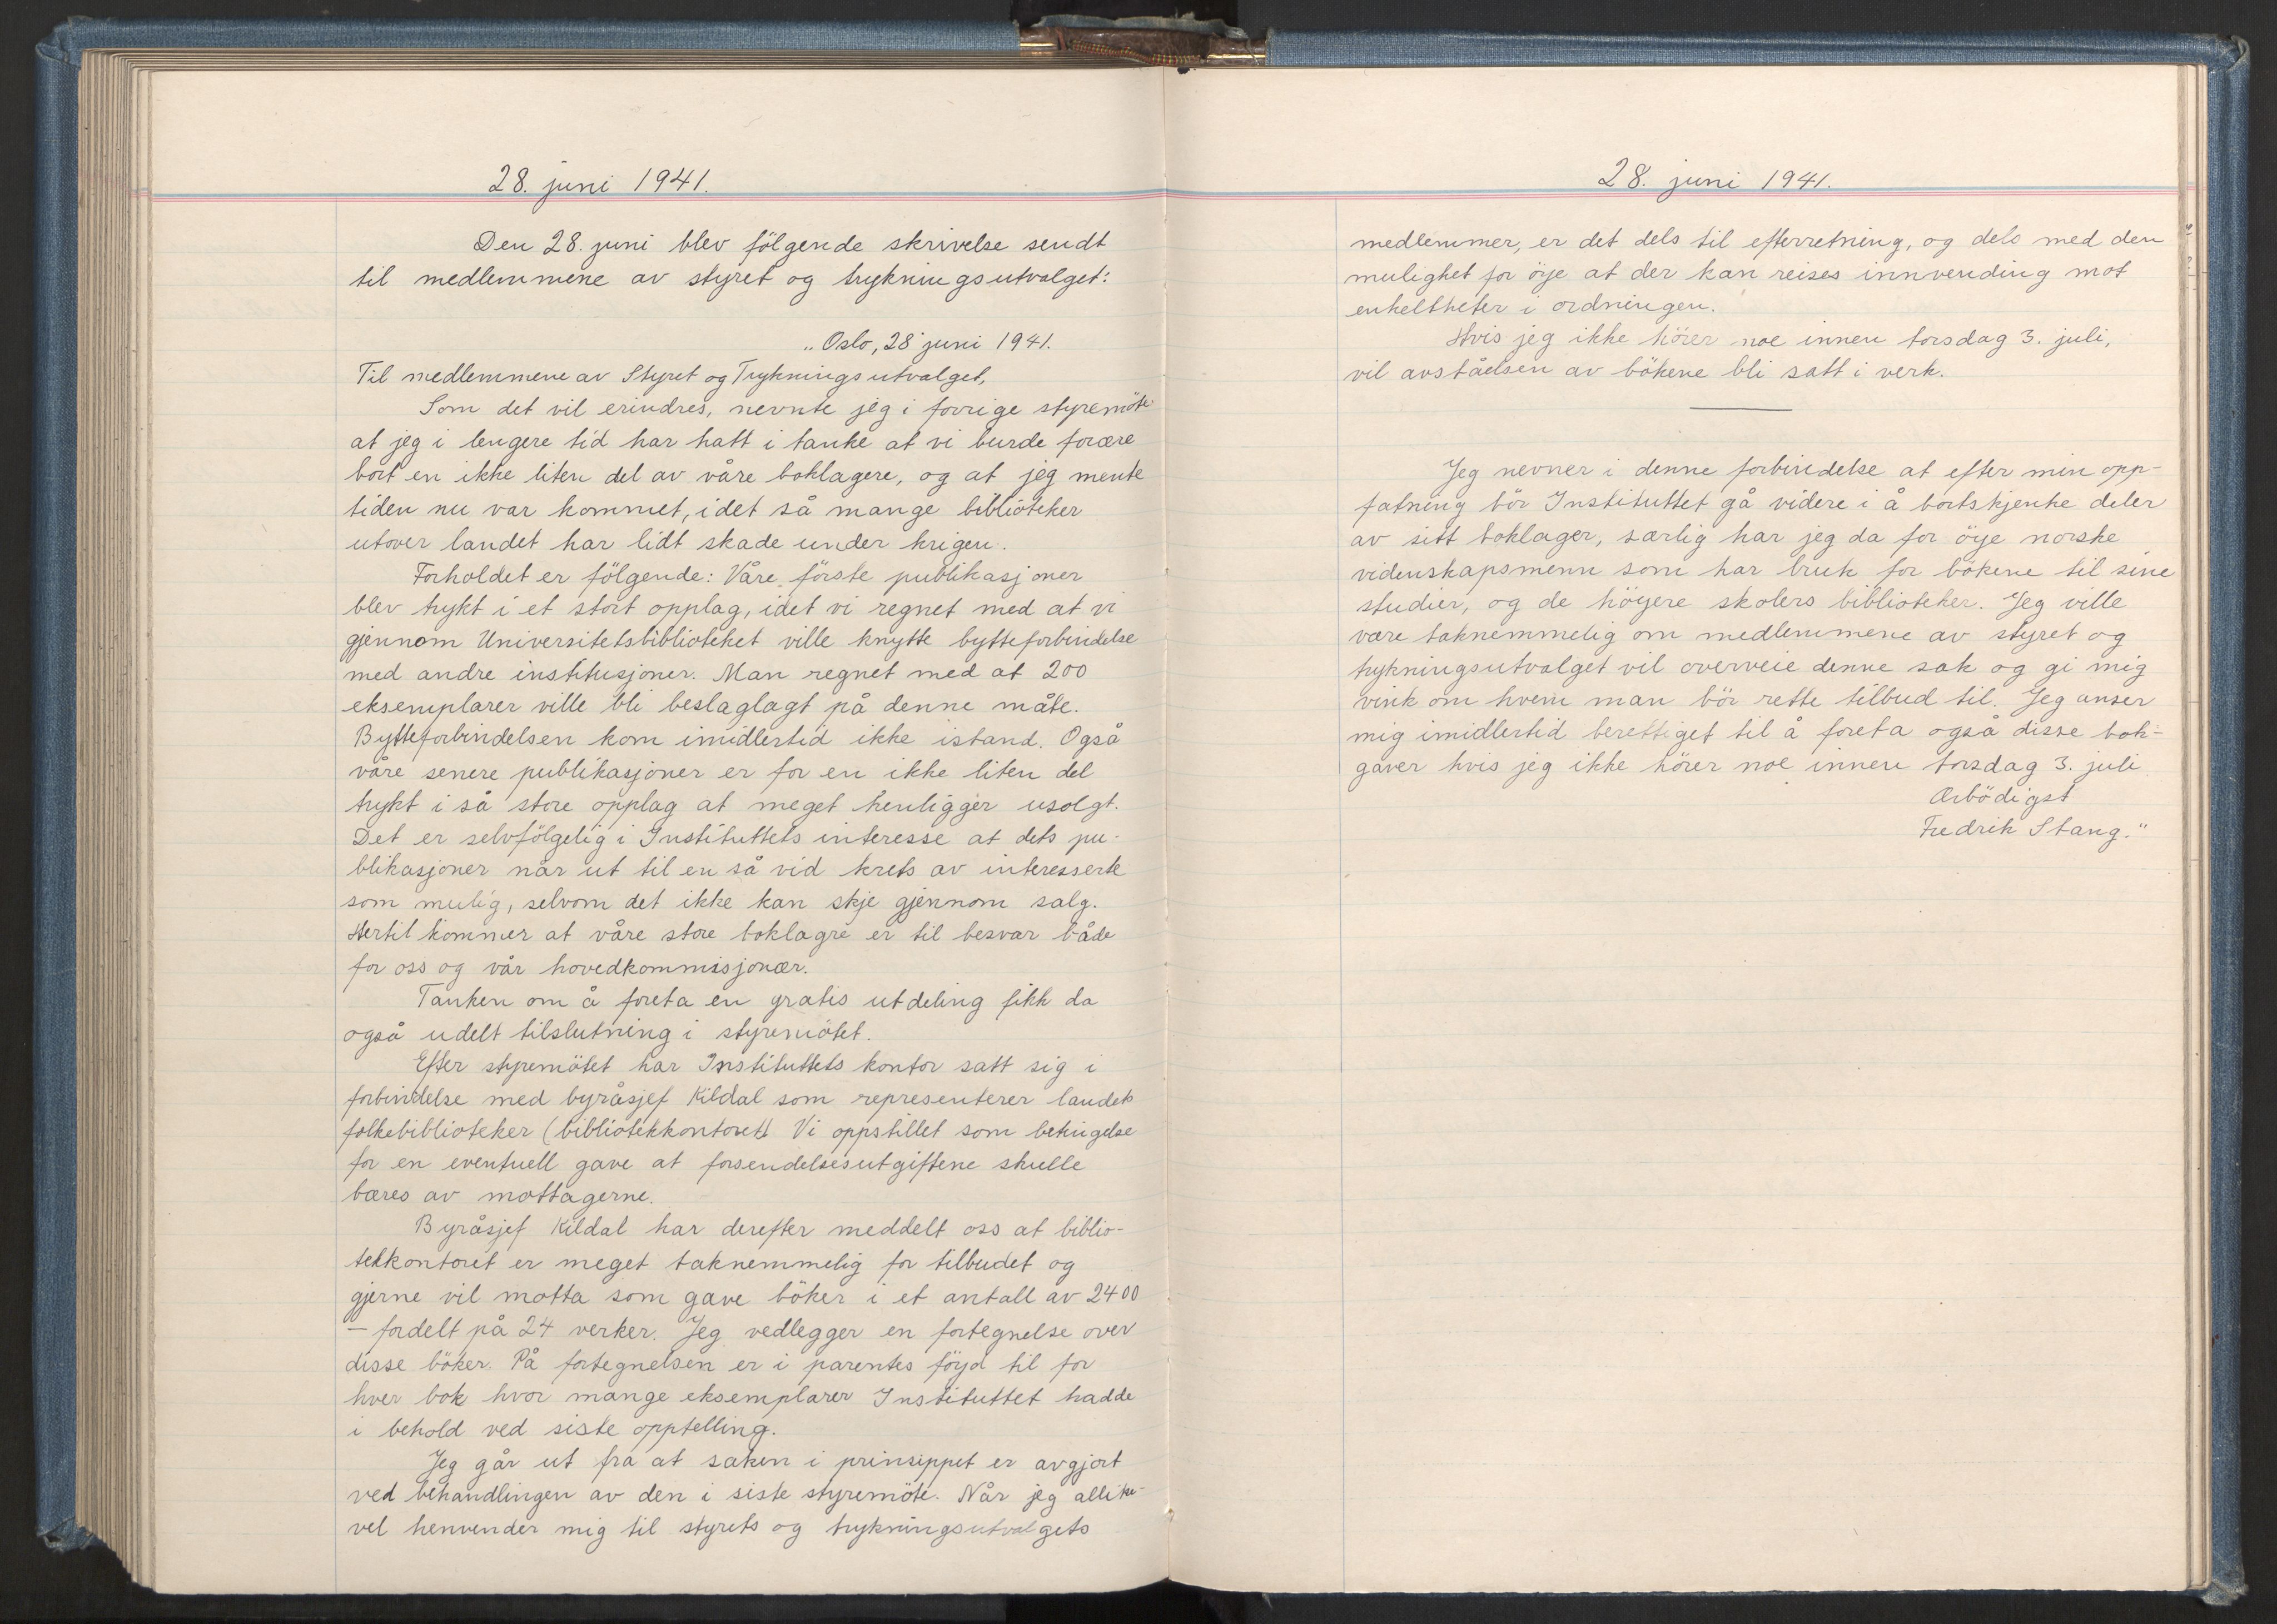 28. juni 1941.
Den 28. juni blev fölgende skrivelse sendt
til medlemmene av styret og trykningsutvalget:
„Oslo, 28 juni 1941.
Til medlemmene av Styret og Trykningsutvalget,
Som det vil erindres, nevnte jeg i forrige styremöte
at jeg i lengere tid har hatt i tanke at vi burde forære
bort en ikke liten del av våre boklagere, og at jeg mente
tiden nu var kommet, idet så mange biblioteker
utover landet har lidt skade under krigen.
Forholdet er fölgende: Våre förste publikasjoner
blev trykt i et stort opplag, idet vi regnet med at vi
gjennom Universitetsbiblioteket ville knytte bytteforbindelse
med andre institusjoner. Man regnet med at 200
eksemplarer ville bli beslaglagt på denne måte.
Bytteforbindelsen kom imidlertid ikke istand. Også
våre senere publikasjoner er for en ikke liten del
trykt i så store opplag at meget henligger usolgt.
Det er selvfölgelig i Instituttets interesse at dets pu-
blikasjoner når ut til en så vid krets av interesserte
som mulig, selvom det ikke kan skje gjennom salg.
Hertil kommer at våre store boklagre er til besvær både
for oss og vår hovedkommisjonær.
Tanken om å foreta en gratis utdeling fikk da
også udelt tilslutning i styremötet.
Efter styremötet har Instituttets kontor satt sig i
forbindelse med byråsjef Kildal som representerer landets
folkebiblioteker (bibliotekkontoret). Vi oppstillet som betingelse
for en eventuell gave at forsendelsesutgiftene skulle
bæres av mottagerne.
Byråsjef Kildal har derefter meddelt oss at biblio-
tekkontoret er meget taknemmelig for tilbudet og
gjerne vil motta som gave böker i et antall av 2400
– fordelt på 24 verker. Jeg vedlegger en fortegnelse over
disse böker. På fortegnelsen er i parentes föyd til for
hver bok hvor mange eksemplarer Instituttet hadde
i behold ved siste opptelling.
Jeg går ut fra at saken i prinsippet er avgjort
ved behandlingen av den i siste styremöte. Når jeg allike-
vel henvender mig til styrets og trykningsutvalgets
28. juni 1941.
medlemmer, er det dels til efterretning, og dels med den
mulighet for öye at der kan reises innvending mot
enkeltheter i ordningen.
Hvis jeg ikke hörer noe innen torsdag 3. juli,
vil avståelsen av bökene bli satt i verk.
Jeg nevner i denne forbindelse at efter min opp-
fatning bör Instituttet gå videre i å bortskjenke deler
av sitt boklager, særlig har jeg da for öye norske
videnskapsmenn som har bruk for bökene til sine
studier, og de höyere skolers biblioteker. Jeg ville
være taknemmelig om medlemmene av styret og
trykningsutvalget vil overveie denne sak og gi mig
vink om hvem man bör rette tilbud til. Jeg anser
mig imidlertid berettiget til å foreta også disse bok-
gaver hvis jeg ikke hörer noe innen torsdag 3. juli
Ærbödigst
Fredrik Stang."